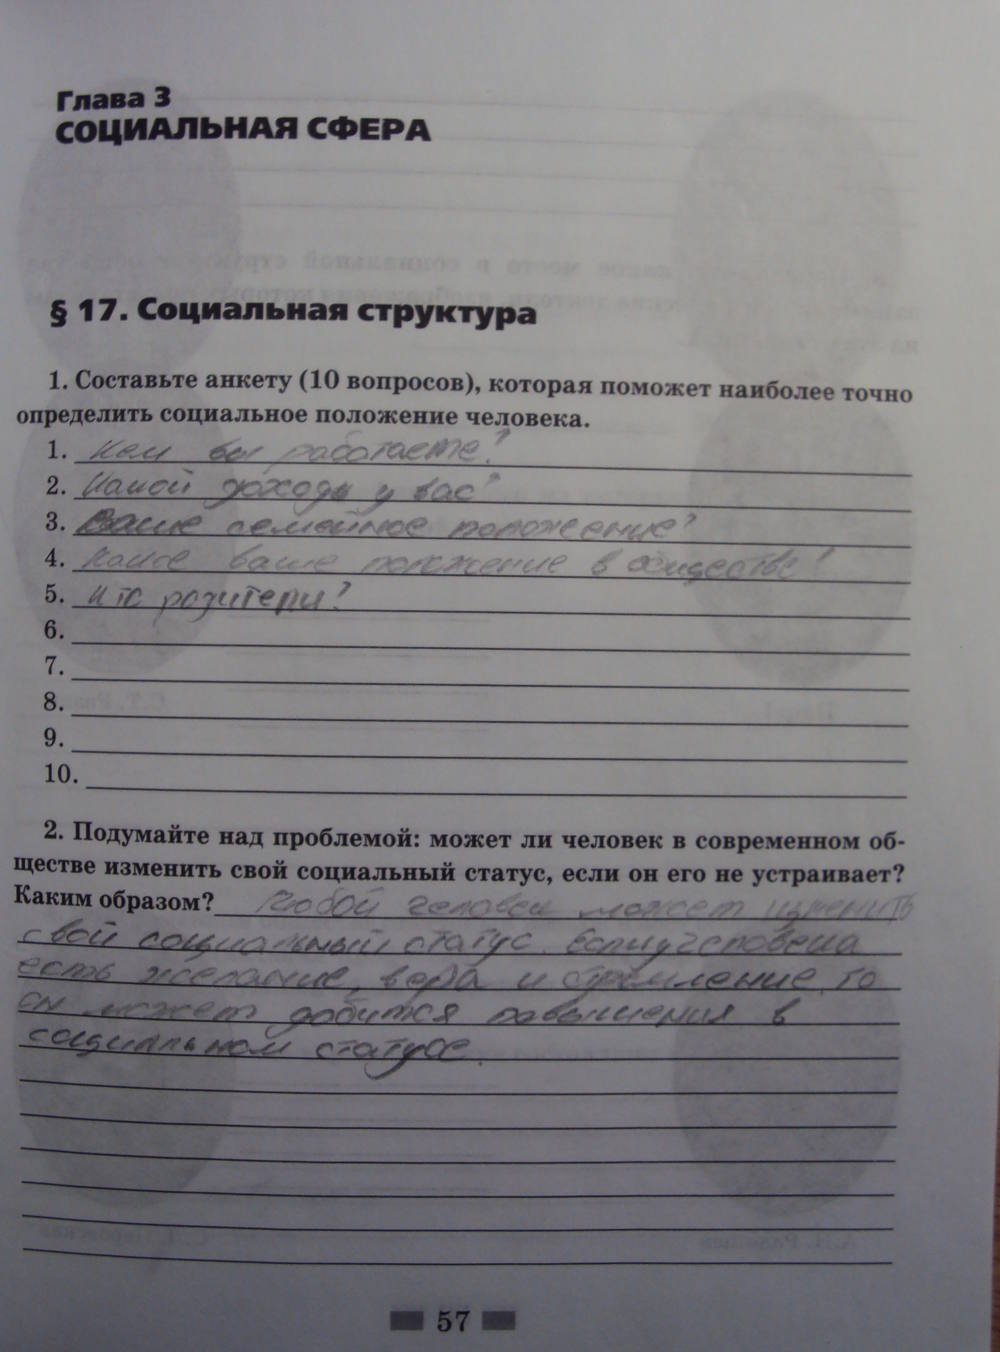 Глава 3
СОЦИАЛЬНАЯ СФЕРА
§ 17. Социальная структура
1. Составьте анкету (10 вопросов), которая поможет наиболее точно
определить социальное положение человека.
1. Кем вы работаете?
2. Какой доходы у вас?
3. Ваше семейное положение?
4. Какое ваше положение в обществе?
5. Кто родители?
6.
7.
8.
9.
10.
2. Подумайте над проблемой: может ли человек в современном об-
ществе изменить свой социальный статус, если он его не устраивает?
Каким образом? Любой человек может изменить
свой социальный статус. Если у человека
есть желание, вера и стремление, то
он может добится повышения в
социальном статусе.
57